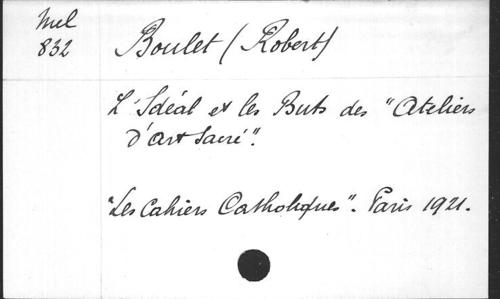 Mel
832
Boulet (Robert)
L'Idéal et les Buts des "Ateliers
d'art sacré".
"Les Cahiers Catholiques". Paris 1921.